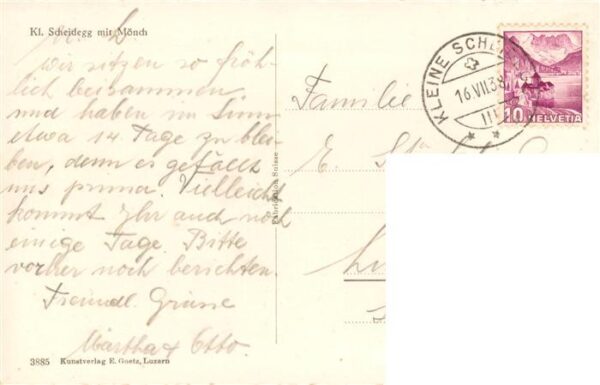 Kl. Scheidegg mit Mönch
wir sitzen so fröh-
lich beisammen
und haben im Sinn
etwa 14 Tage zu blei-
ben, denn es gefällt
uns prima. Vielleicht
kommt Ihr auch noch
einige Tage. Bitte
vorher noch berichten.
Freundl. Grüsse
Martha & Otto.
3885 Kunstverlag E. Goetz, Luzern
Fabrication Suisse
Familie
E.
KLEINE
16.VII.38
10 HELVETIA